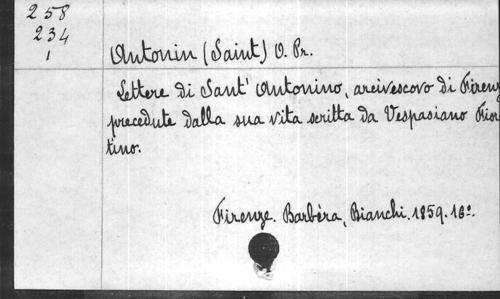 258
234
1
Antonin (Saint) O. Pr.
Lettere di Sant' Antonino, arcivescovo di Firenz
precedute dalla sua vita scritta da Vespasiano Fior
tino.
Firenze. Barbèra, Bianchi. 1859. 16º.